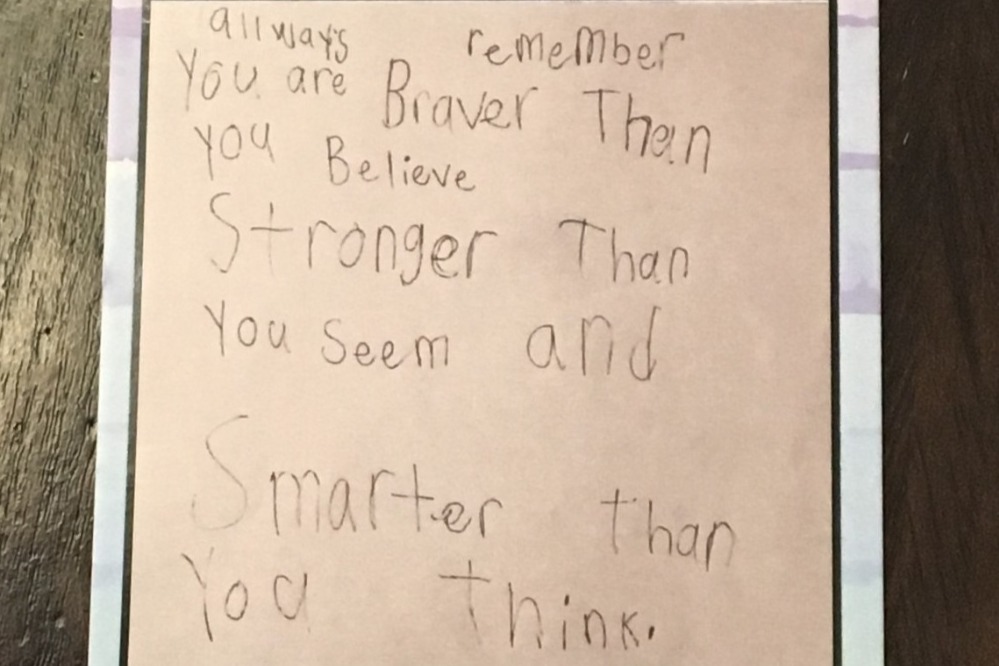 allways remember
You are Braver Than
you Believe
Stronger Than
you seem and
Smarter than
You think.